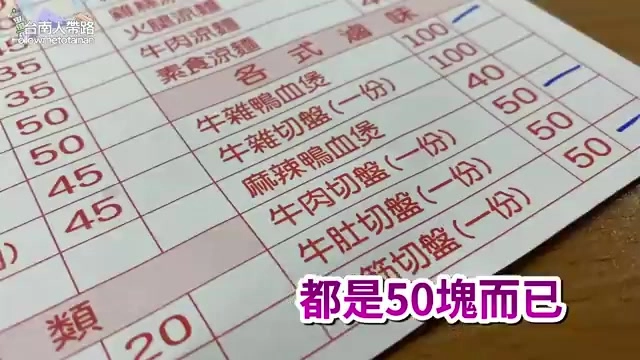 台南人帶路
火腿涼麵
牛肉涼麵
素食涼麵
各式滷味
牛雜鴨血煲 100
牛雜切盤(一份) 100
麻辣鴨血煲 40
牛肉切盤(一份) 50
牛肚切盤(一份) 50
筋切盤(一份) 50
35
35
50
50
45
45
類
20
都是50塊而已